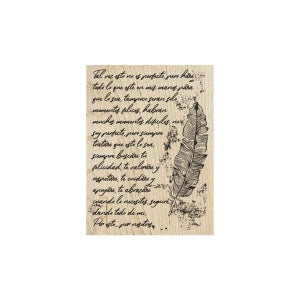 Tal vez esto no es perfecto, pero haré
todo lo que esté en mis manos para
que lo sea, tampoco serán solo
momentos felices, habrán
muchos momentos difíciles, no
soy perfecto, pero siempre
trataré que esto lo sea,
siempre buscaré tu
felicidad, te valoraré y
respetaré, te cuidaré y
apoyaré, te abrazaré
cuando lo necesites, seguiré
dando todo de mi.
Por esto, por nosotros.